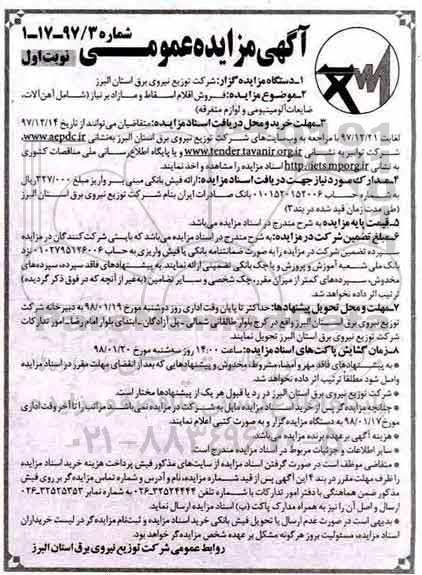 آگهی مزایده عمومی
شماره ۱-۱۷-۹۷/۳
نوبت اول
۱ـ دستگاه مزایده گزار: شرکت توزیع نیروی برق استان البرز
۲ـ موضوع مزایده: فروش اقلام اسقاط و مازاد بر نیاز (شامل آهن آلات،
ضایعات آلومینیومی و لوازم متفرقه)
۳ـ مهلت خرید و محل دریافت اسناد مزایده: متقاضیان می توانند از تاریخ ۹۷/۱۲/۱۴
لغایت ۹۷/۱۲/۲۱ با مراجعه به وب سایت های شرکت توزیع نیروی برق استان البرز به نشانی www.aepdc.ir،
شرکت توانیر به نشانی www.tender.tavanir.org.ir و یا پایگاه اطلاع رسانی ملی مناقصات کشوری
به نشانی http://iets.mporg.ir اسناد مزایده را مشاهده و اخذ نمایند.
۴ـ مدارک مورد نیاز جهت دریافت اسناد مزایده: ارائه فیش بانکی مبنی بر واریز مبلغ ۳۲۷/۰۰۰ ریال
به حساب ۰۱۰۱۵۲۰۱۵۲۰۰۶ بانک صادرات ایران بنام شرکت توزیع نیروی برق استان البرز
(طی مدت زمان قید شده در بند ۳)
۵ـ قیمت پایه مزایده به شرح مندرج در اسناد مزایده می باشد.
۶ـ مبلغ تضمین شرکت در مزایده: به شرح مندرج در اسناد مزایده می باشد که بایستی شرکت کنندگان در مزایده
سپرده تضمین شرکت در مزایده را به صورت ضمانتنامه بانکی یا فیش واریزی به حساب ۰۱۰۲۷۹۵۱۲۶۰۰۶ نزد
بانک ملی شعبه آموزش و پرورش و یا چک بانکی تضمینی ارائه نمایند. به پیشنهادهای فاقد سپرده، سپرده های
مخدوش، سپرده های کمتر از میزان مقرر، چک شخصی و سایر تضامین (به غیر از آنچه که در فوق ذکر گردیده)
ترتیب اثر داده نخواهد شد.
۷ـ مهلت و محل تحویل پیشنهادها: حداکثر تا پایان وقت اداری روز دوشنبه مورخ ۹۸/۰۱/۱۹ به دبیرخانه شرکت
توزیع نیروی برق استان البرز واقع در کرج بلوار طالقانی شمالی ـ پل آزادگان ـ ابتدای بلوار امام رضا ـ امور تدارکات
شرکت توزیع نیروی برق استان البرز تحویل نمایند.
۸ـ زمان گشایش پاکت های اسناد مزایده: ساعت ۱۴:۰۰ روز سه شنبه مورخ ۹۸/۰۱/۲۰
* به پیشنهادهای فاقد مهر و امضا، مشروط، مخدوش و پیشنهادهایی که بعد از انقضای مهلت مقرر در اسناد مزایده
واصل شود مطلقاً ترتیب اثر داده نخواهد شد.
* شرکت توزیع نیروی برق استان البرز در رد یا قبول هر یک از پیشنهادها مختار است.
* چنانچه مزایده گران با خرید اسناد مزایده مایل به شرکت در مزایده نمی باشند مراتب را تا آخر وقت اداری
مورخ ۹۸/۰۱/۱۷ به دستگاه مزایده گزار و به صورت کتبی اعلام نمایند.
* هزینه آگهی برعهده برنده مزایده می باشد.
* سایر اطلاعات و جزئیات مربوط در اسناد مزایده مندرج است
* متقاضی موظف است در صورت گرفتن اسناد مزایده از سایت های مذکور فیش پرداخت هزینه خرید اسناد مزایده
را ظرف مهلت مقرر در بند ۴ این آگهی پس از قید شماره مزایده، نام و آدرس و شماره تماس مزایده گر بر روی فیش
مذکور ضمن هماهنگی با دفتر امور تدارکات با شماره تلفن ۳۳۵۲۴۴۴۴-۰۲۶ به شماره نمابر ۳۲۵۲۵۳۵۳-۰۲۶
ارسال و اصل آن را نیز به همراه مدارک پاکت (ب) اسناد مزایده ارسال نماید.
* بدیهی است در صورت عدم ارسال یا تحویل فیش بانکی خرید اسناد مزایده و ثبت نام مزایده گر در لیست خریداران
اسناد مزایده، مسئولیت بروز هر گونه مشکل بر عهده شخص مزایده گر خواهد بود.
روابط عمومی شرکت توزیع نیروی برق استان البرز